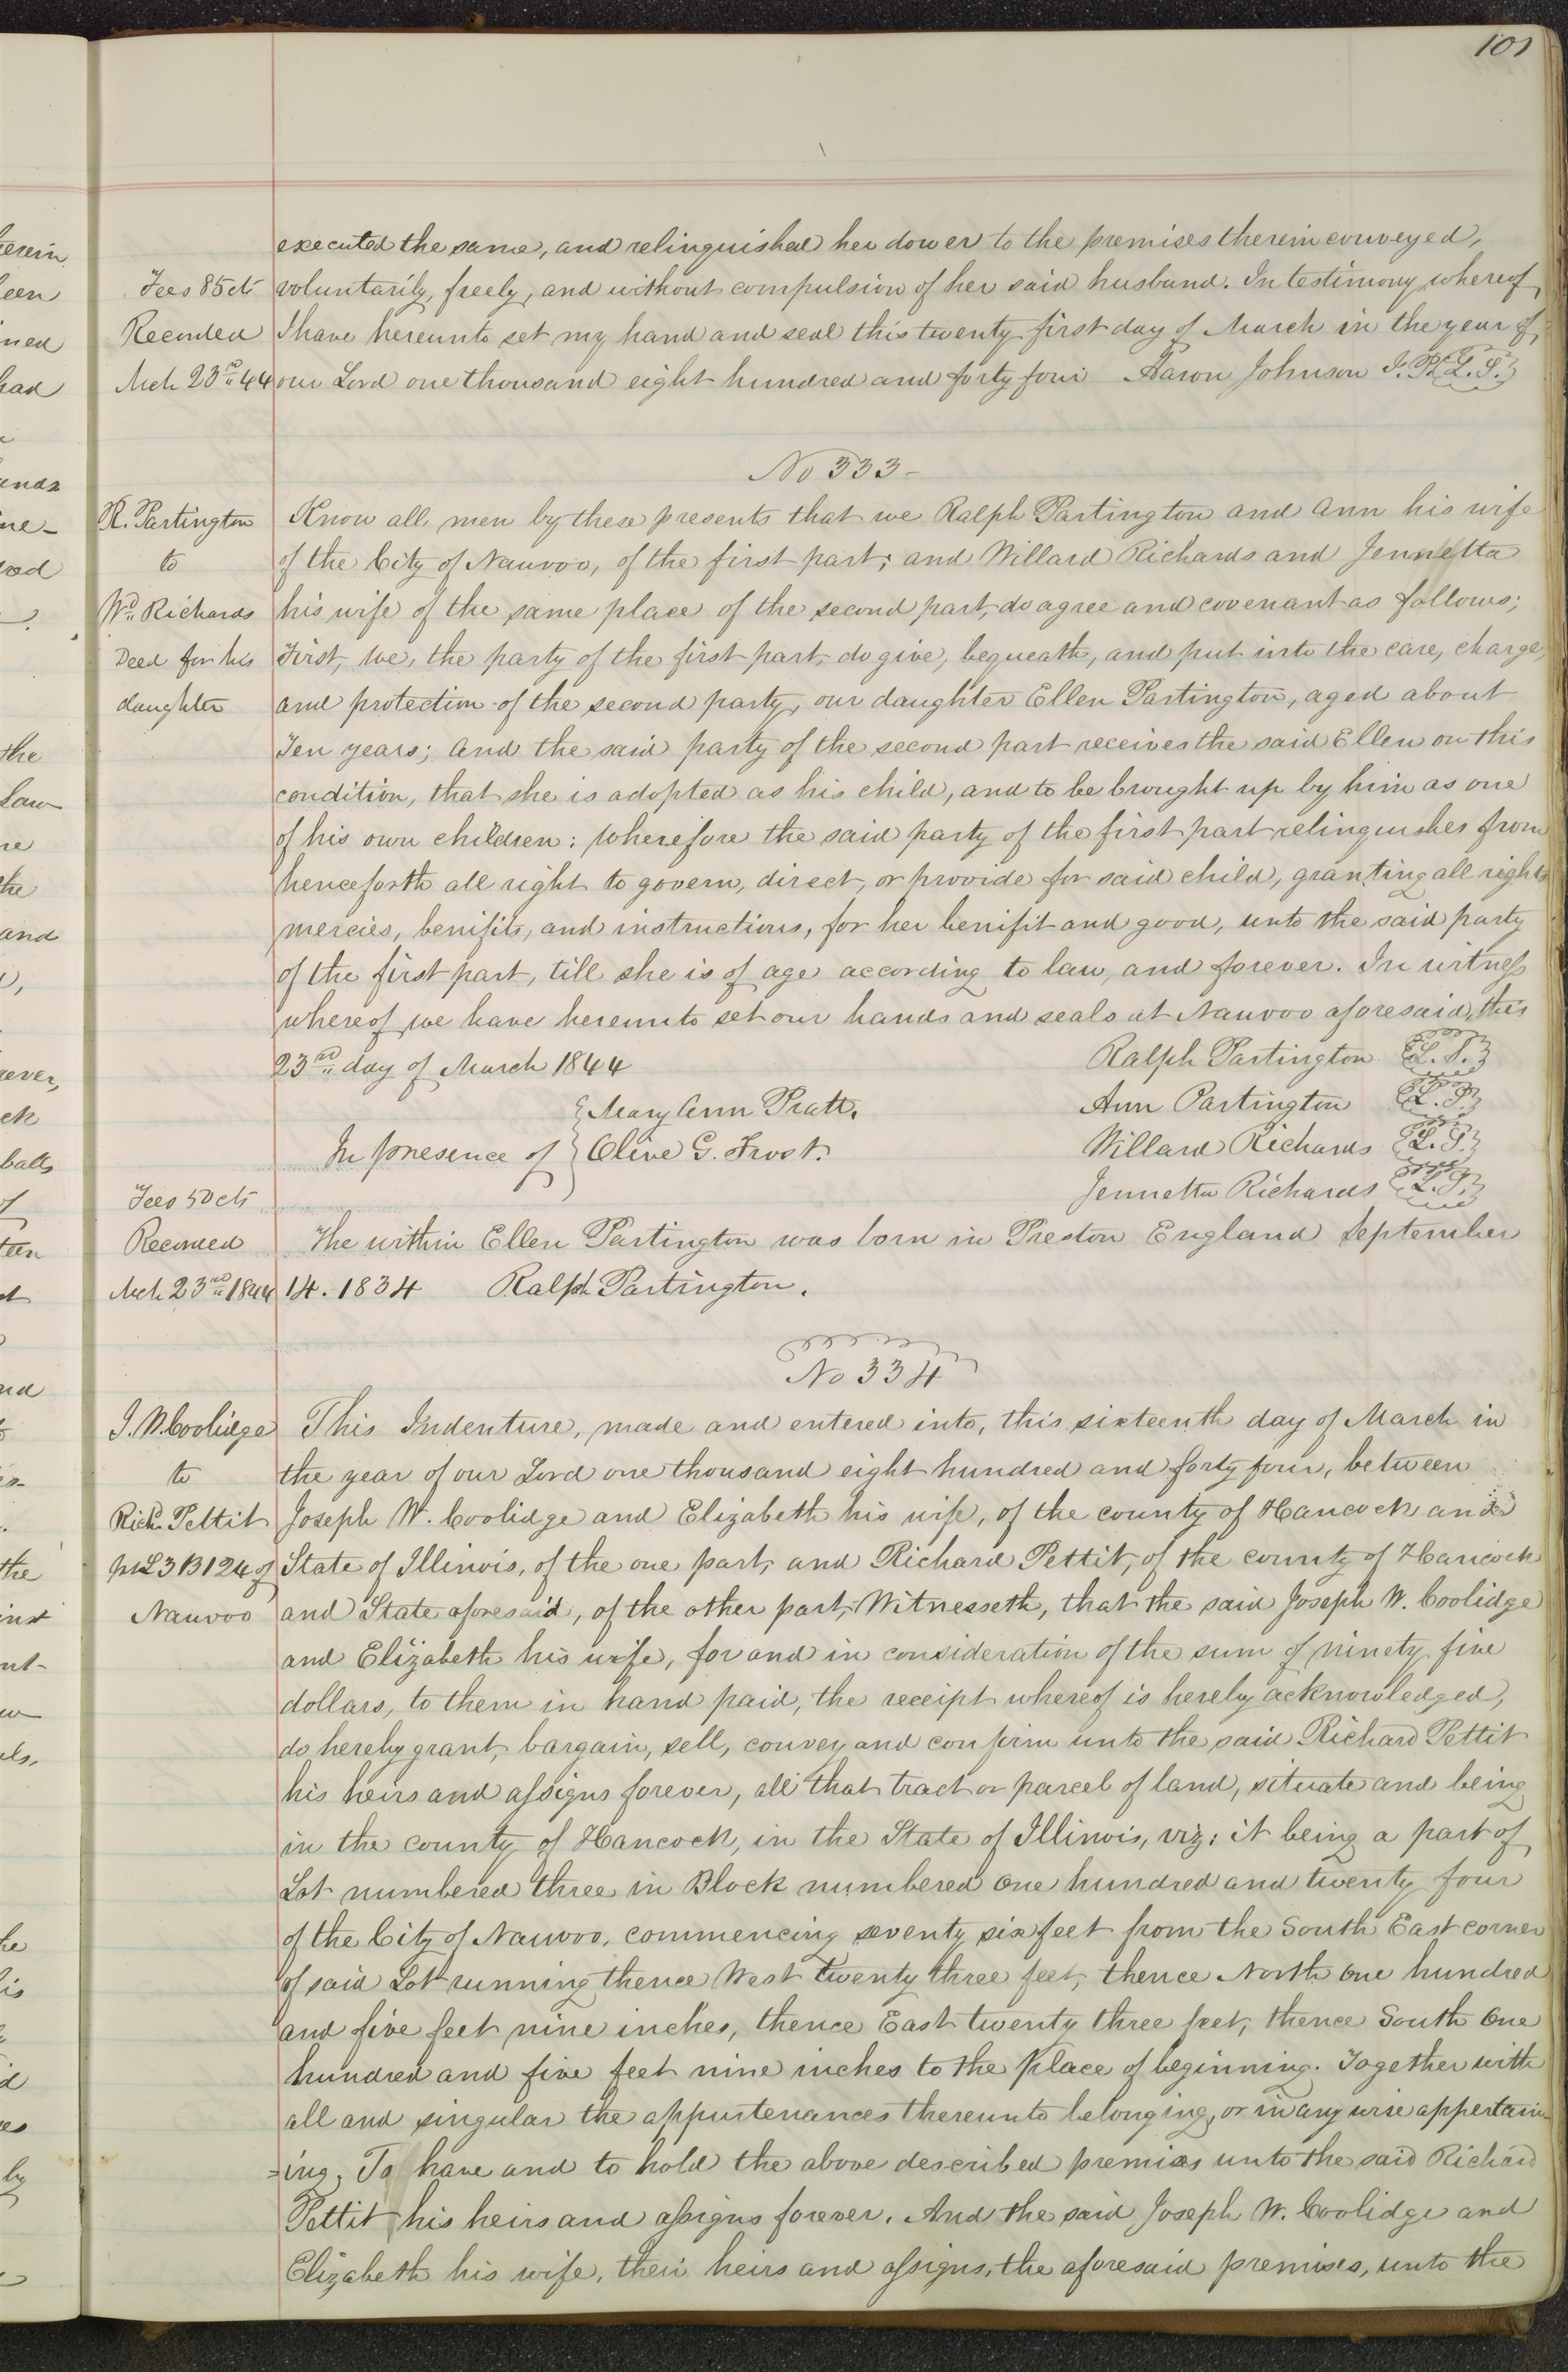 101
executed the same, and relinquished her dower to the premises therein conveyed,
Fees 85 cts voluntarily, freely, and without compulsion of her said husband. In testimony whereof,
Recorded I have hereunto set my hand and seal this twenty first day of March in the year of,
Mch 23rd 44 our Lord one thousand eight hundred and forty four Aaron Johnson J. P. L. S.
No 333-
R. Partington Know all men by these presents that we Ralph Partington and Ann his wife
to of the City of Nauvoo, of the first part; and Willard Richards and Jennetta
Wd Richards his wife of the same place of the second part, do agree and covenant as follows;
Deed for his First, we, the party of the first part, do give, bequeath, and put into the care, charge,
daughter and protection of the second party, our daughter Ellen Partington, aged about
Ten years; And the said party of the second part receives the said Ellen on this
condition, that she is adopted as his child, and to be brought up by him as one
of his own children: Wherefore the said party of the first part relinquishes from
henceforth all right to govern, direct, or provide for said child, granting all rights
mercies, benifits, and instructions, for her benifit and good, unto the said party
of the first part, till she is of age according to law, and forever. In witness
whereof we have hereunto set our hands and seals at Nauvoo aforesaid, this
23rd day of March 1844 Ralph Partington L. S.
Mary Ann Pratt. Ann Partington L. S.
In presence of Olive G. Frost. Willard Richards L. S.
Fees 50 cts Jennetta Richards L. S.
Recorded The within Ellen Partington was born in Preston England September
Mch 23rd 1844 14. 1834 Ralph Partington.
No 334
J. W. Coolidge This Indenture, made and entered into, this sixteenth day of March in
to the year of our Lord one thousand eight hundred and forty four, between
Richd Pettit Joseph W. Coolidge and Elizabeth his wife, of the county of Hancock and
pt L 3 B 124 of State of Illinois, of the one part, and Richard Pettit, of the county of Hancock
Nauvoo and State aforesaid, of the other part, Witnesseth, that the said Joseph W. Coolidge
and Elizabeth his wife, for and in consideration of the sum of ninety five
dollars, to them in hand paid, the receipt whereof is hereby acknowledged,
do hereby grant, bargain, sell, convey and confirm unto the said Richard Pettit
his heirs and assigns forever, all that tract or parcel of land, situate and being
in the county of Hancock, in the State of Illinois, viz: it being a part of
Lot numbered three in Block numbered one hundred and twenty four
of the City of Nauvoo, commencing seventy six feet from the South East corner
of said Lot running thence West twenty three feet, thence North one hundred
and five feet nine inches, thence East twenty three feet, thence South One
hundred and five feet nine inches to the place of beginning. Together with
all and singular the appurtenances thereunto belonging, or in any wise appertain
=ing, To have and to hold the above described premises unto the said Richard
Pettit his heirs and assigns forever. And the said Joseph W. Coolidge and
Elizabeth his wife, their heirs and assigns, the aforesaid premises, unto the